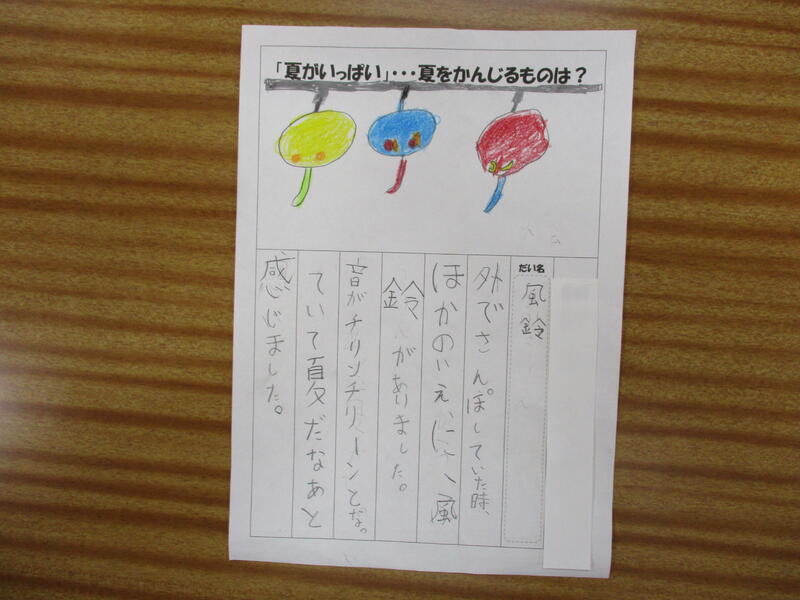 「夏がいっぱい」･･･夏をかんじるものは？
だい名
風鈴
外でさんぽしていた時、
ほかのいえに、風
鈴がありました。
音がチリンチリーンとな。
ていて夏だなあと
感じました。